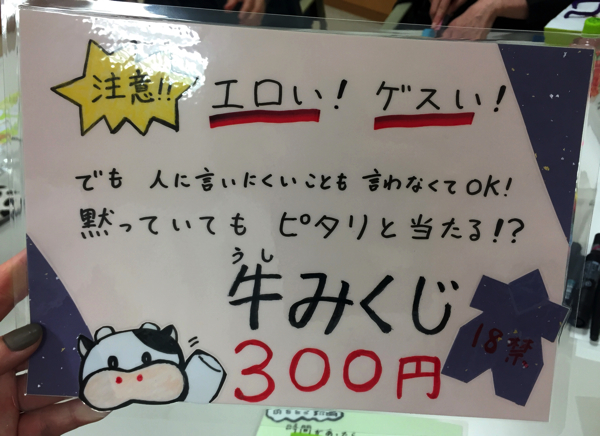 注意!!
エロい! ゲスい!
でも 人に言いにくいことも 言わなくてOK!
黙っていても ピタリと当たる!?
うし
牛みくじ
300円
18禁